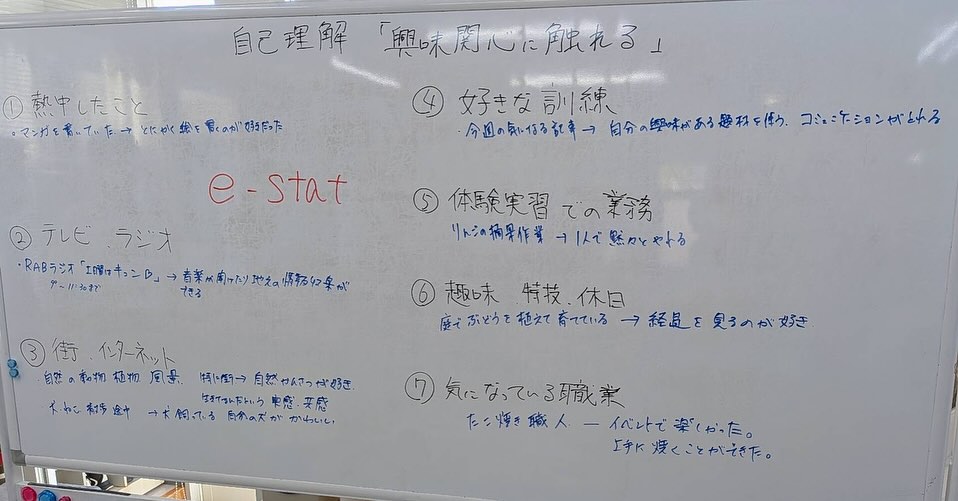 自己理解 「興味関心に触れる」
① 熱中したこと
・マンガを書いていた → とにかく絵を書くのが好きだった
e-stat
② テレビ、ラジオ
・RABラジオ「土曜はキュン♡」→ 音楽が聞けたり地元の情報収集が
9~11:30まで
できる
③ 街、インターネット
・自然の動物 植物 風景、特に街→ 自然かんさつが好き、
という 実感、共感
・犬、ねこ 散歩 途中 → 犬飼っている 自分の犬が かわいい
④ 好きな訓練
・今週の気になる記事 → 自分の興味がある題材を使う、コミュニケーションがとれる
⑤ 体験実習での業務
りんごの摘果作業 → 1人で黙々とやれる
⑥ 趣味、特技、休日
庭でぶどうを植えて育てている → 経過を見るのが好き
⑦ 気になっている職業
たこ焼き職人 ー イベントで楽しかった。
上手に焼くことができた。